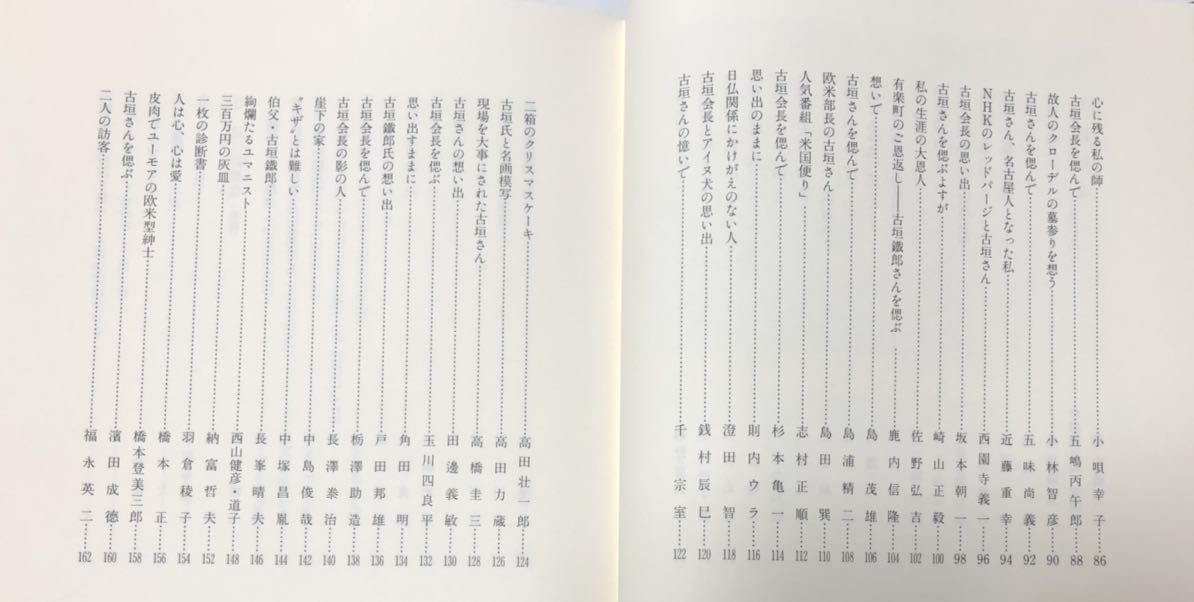 心に残る私の師……小唄幸子……86
古垣会長を偲んで……五嶋丙午郎……88
故人のクローデルの墓参りを想う……小林智彦……90
古垣さんを偲んで……五味尚義……92
古垣さん、名古屋人となった私……近藤重幸……94
NHKのレッドパージと古垣さん……西園寺義一……96
古垣会長の思い出……坂本朝一……98
古垣さんを偲ぶよすが……崎山正毅……100
私の生涯の大恩人……佐野弘吉……102
有楽町のご恩返し――古垣鐵郎さんを偲ぶ……鹿内信隆……104
想いで……島茂雄……106
古垣さんを偲んで……島浦精二……108
欧米部長の古垣さん……島田巽……110
人気番組「米国便り」……志村正順……112
古垣会長を偲んで……杉本亀一……114
思い出のままに……則内ウラ……116
日仏関係にかけがえのない人……澄田智……118
古垣会長とアイヌ犬の思い出……銭村辰巳……120
古垣さんの憶いで……千宗室……122
二箱のクリスマスケーキ……高田壮一郎……124
古垣氏と名画模写……高田力蔵……126
現場を大事にされた古垣さん……高橋圭三……128
古垣さんの想い出……田邊義敏……130
古垣会長を偲ぶ……玉川四良平……132
思い出すままに……角田明……134
古垣鐵郎氏の想い出……戸田邦雄……136
古垣会長を偲んで……栃澤助造……138
古垣会長の影の人……長澤泰治……140
崖下の家……中島俊哉……142
〝キザ〟とは難しい……中塚昌胤……144
伯父・古垣鐵郎……長峯晴夫……146
絢爛たるユマニスト……西山健彦・道子……148
三百万円の灰皿……納富哲夫……152
一枚の診断書……羽倉稜子……154
人は心、心は愛……橋本正……156
皮肉でユーモアの欧米型紳士……橋本登美三郎……158
古垣さんを偲ぶ……濱田成徳……160
二人の訪客……福永英二……162